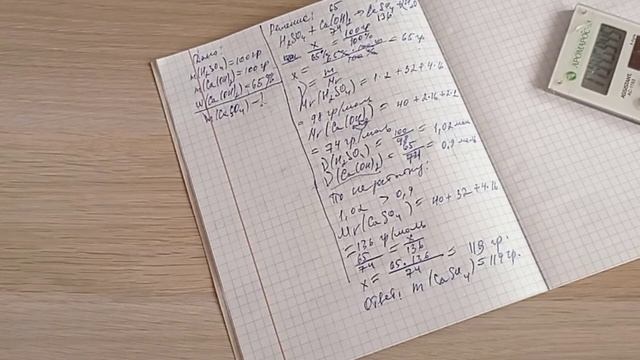 Дано:
m(H₂SO₄)=100гр
m(Ca(OH)₂)=100гр
W(Ca(OH)₂)=65%
m(CaSO₄)-?
Решение: 65
H₂SO₄ + Ca(OH)₂ → CaSO₄
136
X/65% = 100гр/100%
X = = 65гр
ν = m/Mr
Mr(H₂SO₄) = 1·2 + 32 + 4·16
= 98 гр/моль
Mr(Ca(OH)₂) = 40 + 2·16 + 2·1
= 74 гр/моль
ν(H₂SO₄) = 100/98 = 1,02 моль
ν(Ca(OH)₂) = 65/74 = 0,9 моль
По
1,02 > 0,9
Mr(CaSO₄) = 40 + 32 + 4·16
= 136 гр/моль
65/74 = X/136
X = 65·136/74 = 119 гр.
Ответ: m(CaSO₄) = 119гр.